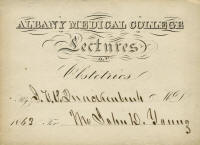 ALBANY MEDICAL COLLEGE
Lectures
ON
Obstetrics
By J. V. P. Quackenbush M.D.
1863 For Mr John D. Young
3